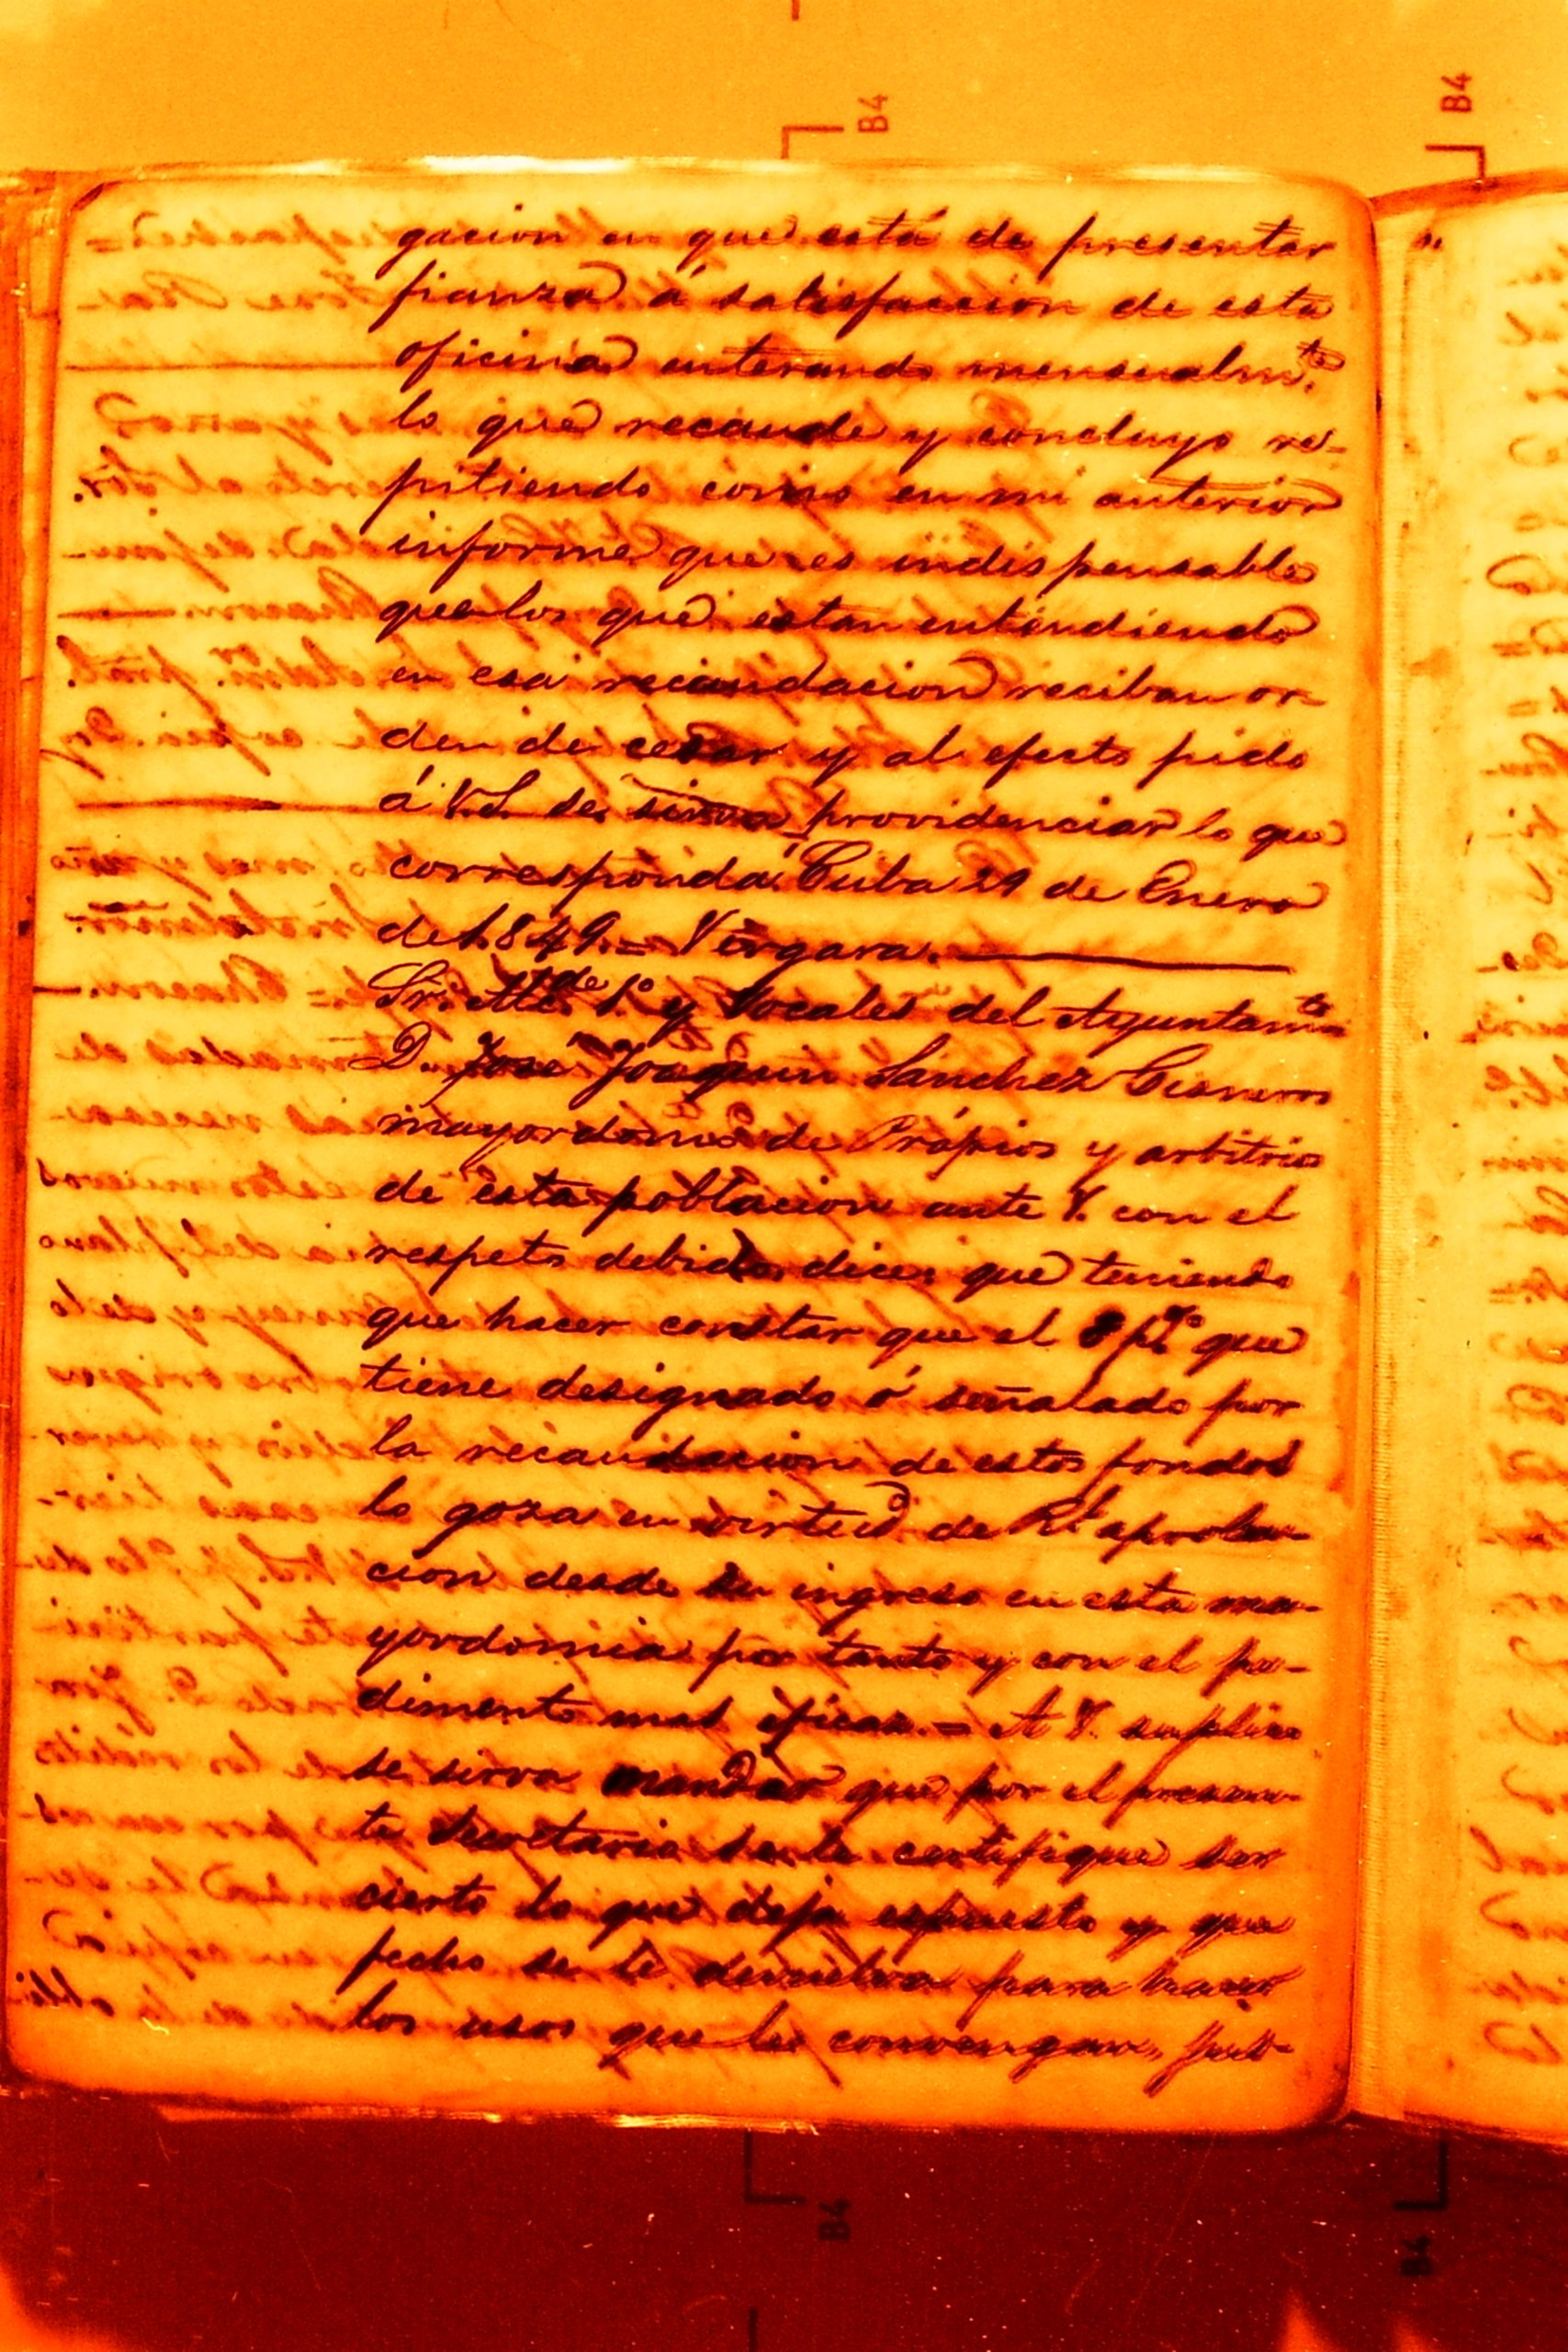 B4
B4
gacion en que está de presentar
fianza á satisfaccion de esta
oficina enterando mensualmte.
lo que recaude y concluyo re-
pitiendo como en mi anterior
informe que es indispensable
que los que estan entendiendo
en esa recaudacion reciban or-
den de cesar y al efecto pido
á V.S. se sirva providenciar lo que
corresponda. Cuba 29 de Enero
de 1.849.= Vergara.
Sr. Alcde. 1.º y Vocales del Ayuntamto
D. José Joaquin Sanchez Cisneros
mayordomo de Própios y arbitrios
de esta poblacion ante V. con el
respeto debido dice: que teniendo
que hacer constar que el 8 p% que
tiene designado ó señalado por
la recaudacion de estos fondos
lo goza en virtud de Rl. aproba-
cion desde su ingreso en esta ma-
yordomia por tanto y con el pe-
dimento mas eficaz.= A V. suplico
se sirva mandar que por el presen-
te Secretario se le certifique ser
cierto lo que deja espuesto y que
fecho se le devuelva para hacer
los usos que le convengan,
B4
B4